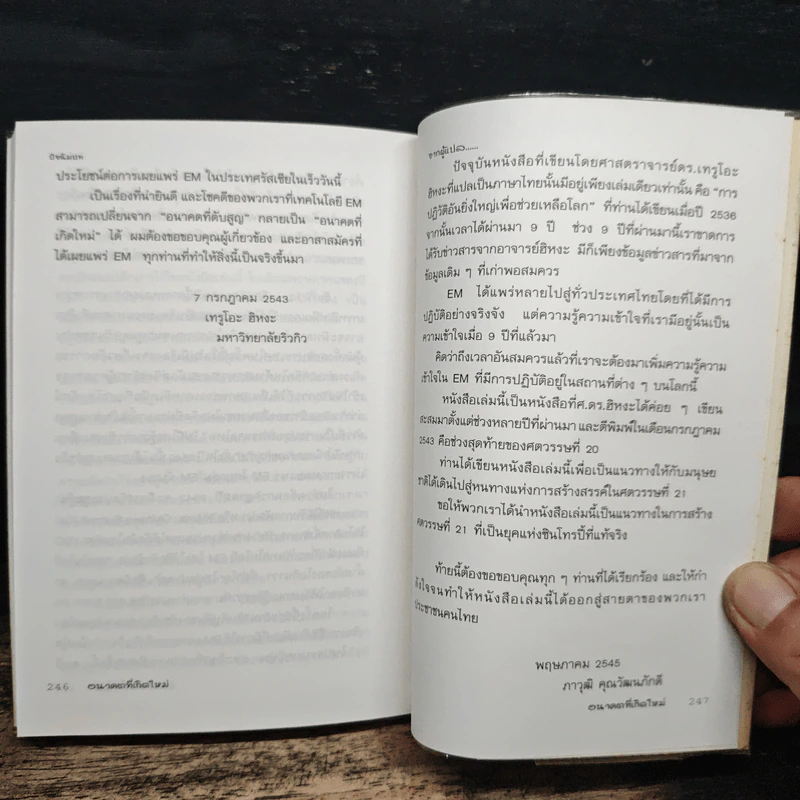 ปัจฉิมบท
ประโยชน์ต่อการเผยแพร่ EM ในประเทศรัสเซียในเร็ววันนี้
เป็นเรื่องที่น่ายินดี และโชคดีของพวกเราที่เทคโนโลยี EM
สามารถเปลี่ยนจาก “อนาคตที่ดับสูญ” กลายเป็น “อนาคตที่
เกิดใหม่” ได้ ผมต้องขอขอบคุณผู้เกี่ยวข้อง และอาสาสมัครที่
ได้เผยแพร่ EM ทุกท่านที่ทำให้สิ่งนี้เป็นจริงขึ้นมา
7 กรกฎาคม 2543
เทรูโอะ ฮิหงะ
มหาวิทยาลัยริวกิว
246 อนาคตที่เกิดใหม่
จากผู้แปล......
ปัจจุบันหนังสือที่เขียนโดยศาสตราจารย์ดร.เทรูโอะ
ฮิหงะที่แปลเป็นภาษาไทยนั้นมีอยู่เพียงเล่มเดียวเท่านั้น คือ “การ
ปฏิวัติอันยิ่งใหญ่เพื่อช่วยเหลือโลก” ที่ท่านได้เขียนเมื่อปี 2536
จากนั้นเวลาได้ผ่านมา 9 ปี ช่วง 9 ปีที่ผ่านมานี้เราขาดการ
ได้รับข่าวสารจากอาจารย์ฮิหงะ มีก็เพียงข้อมูลข่าวสารที่มาจาก
ข้อมูลเดิม ๆ ที่เก่าพอสมควร
EM ได้แพร่หลายไปสู่ทั่วประเทศไทยโดยที่ได้มีการ
ปฏิบัติอย่างจริงจัง แต่ความรู้ความเข้าใจที่เรามีอยู่นั้นเป็น
ความเข้าใจเมื่อ 9 ปีที่แล้วมา
คิดว่าถึงเวลาอันสมควรแล้วที่เราจะต้องมาเพิ่มความรู้ความ
เข้าใจใน EM ที่มีการปฏิบัติอยู่ในสถานที่ต่าง ๆ บนโลกนี้
หนังสือเล่มนี้เป็นหนังสือที่ศ.ดร.ฮิหงะได้ค่อย ๆ เขียน
สะสมมาตั้งแต่ช่วงหลายปีที่ผ่านมา และตีพิมพ์ในเดือนกรกฎาคม
2543 คือช่วงสุดท้ายของศตวรรษที่ 20
ท่านได้เขียนหนังสือเล่มนี้เพื่อเป็นแนวทางให้กับมนุษย
ชาติได้เดินไปสู่หนทางแห่งการสร้างสรรค์ในศตวรรษที่ 21
ขอให้พวกเราได้นำหนังสือเล่มนี้เป็นแนวทางในการสร้าง
ศตวรรษที่ 21 ที่เป็นยุคแห่งซินโทรปี้ที่แท้จริง
ท้ายนี้ต้องขอขอบคุณทุก ๆ ท่านที่ได้เรียกร้อง และให้กำ
ลังใจจนทำให้หนังสือเล่มนี้ได้ออกสู่สายตาของพวกเรา
ประชาชนคนไทย
พฤษภาคม 2545
ภาวุฒิ คุณวัฒนภักดี
อนาคตที่เกิดใหม่ 247